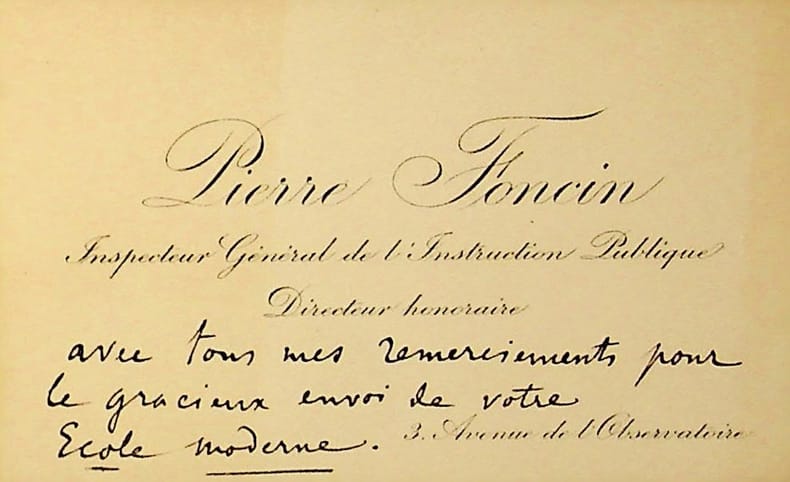 Pierre Foncin
Inspecteur Général de l'Instruction Publique
Directeur honoraire
avec tous mes remerciements pour
le gracieux envoi de votre
Ecole moderne.
3. Avenue de l'Observatoire